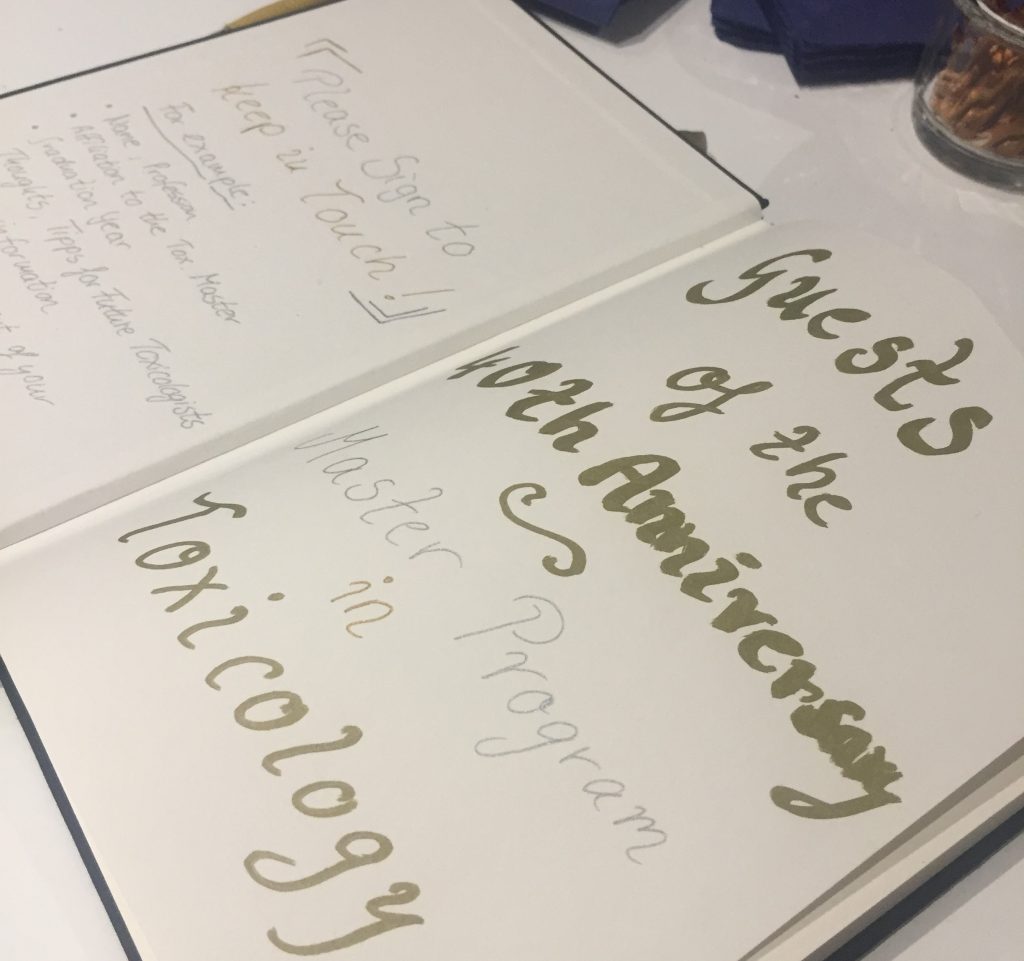 "Please Sign to
Keep in Touch!"
For example:
• Name, Profession
• Affiliation to the Tox. Master
• Graduation Year
Thoughts, Tipps for Future Toxicologists
formation
of your
Guests
of the
40th Anniversary
Master Program
in
Toxicology